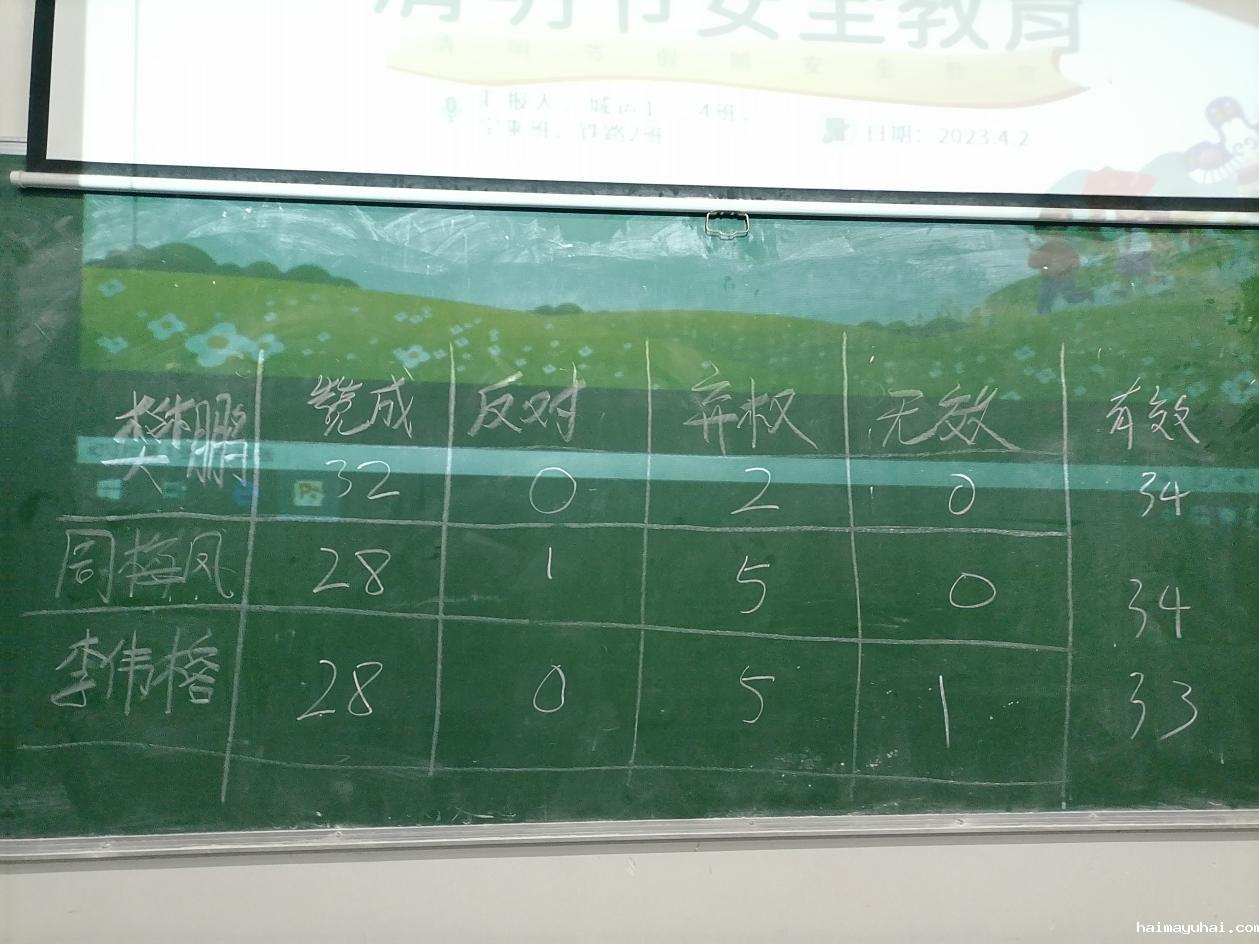 清明节安全教育
清明节假期安全教育
4班、
铁路2班
日期：2023.4.2
樊鹏 赞成 反对 弃权 无效 有效
32 0 2 0 34
周梅凤 28 1 5 0 34
李伟榕 28 0 5 1 33
haimayuhai.com